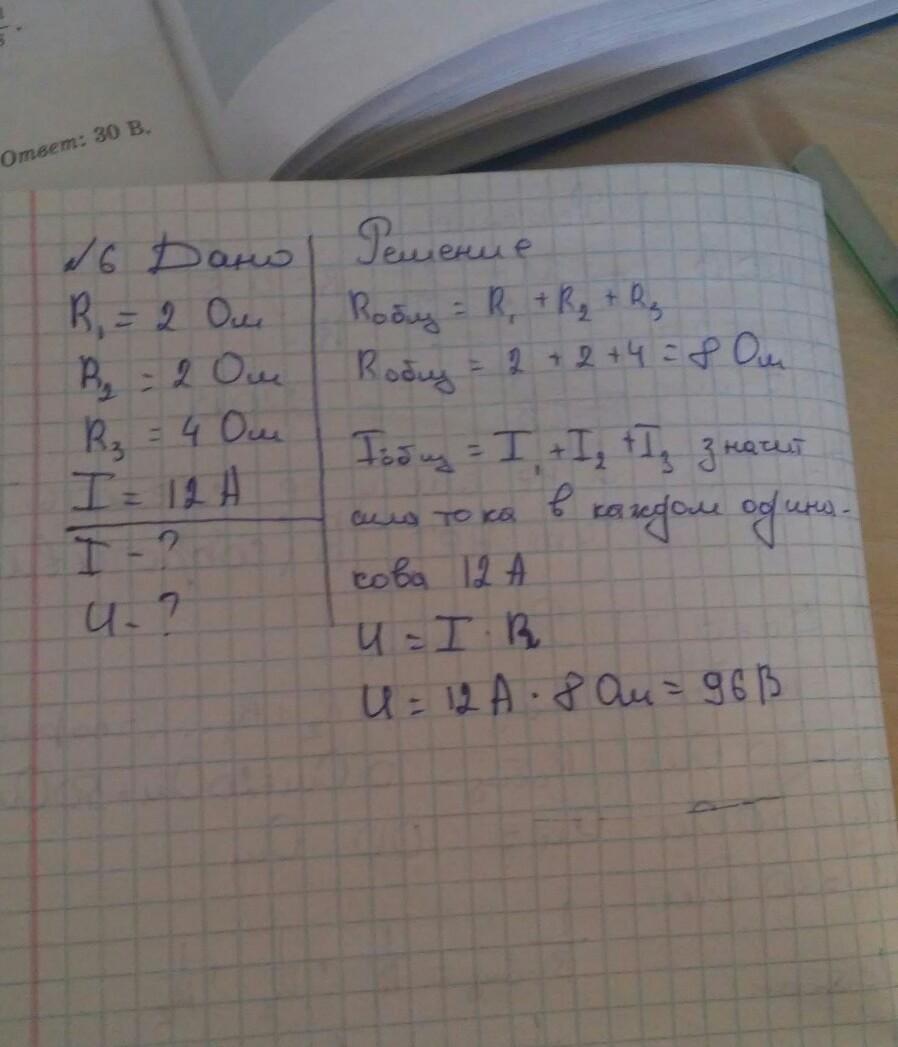 Ответ: 30 В.
№6 Дано
R₁ = 2 Ом
R₂ = 2 Ом
R₃ = 4 Ом
I = 12 А
I - ?
U - ?
Решение
Rобщ = R₁ + R₂ + R₃
Rобщ = 2 + 2 + 4 = 8 Ом
Iобщ = I₁ + I₂ + I₃ значит
сила тока в каждом одина-
кова 12 А
U = I · R
U = 12 А · 8 Ом = 96 В